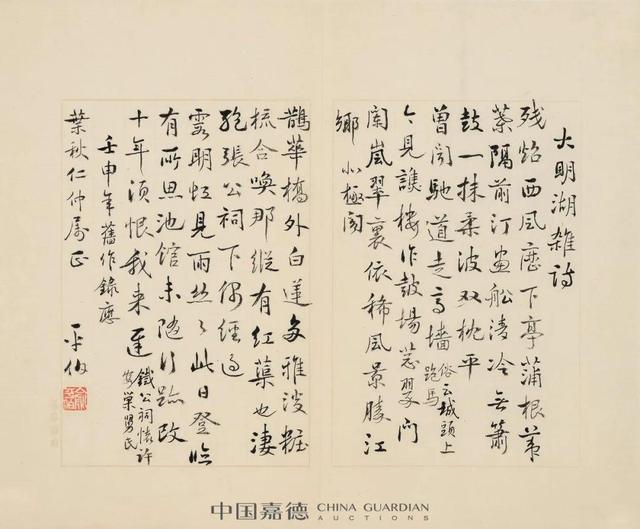 大明湖雜詩
残炤西風歷下亭蒲根葦
葉隔前汀畫船淒冷無簫
鼓一抹柔波双枕平
曾聞馳道走高墻俗云城頭上
跑馬
今見譙樓作鼓場門
闌嵐翠裏依稀風景勝江
鄉 北極閣
鵲華橋外白蓮多雅淡粧
梳合喚那縱有紅蕖也淒
絕張公祠下偶經過
露明恆見雨絲々此日登臨
有所思池館未隨行跡改
十年須恨我來遲鐵公祠懷許
安巢舅氏
壬申年舊作錄應
葉秋仁仲属正
平伯
中国嘉德 CHINA GUARDIAN
AUCTIONS